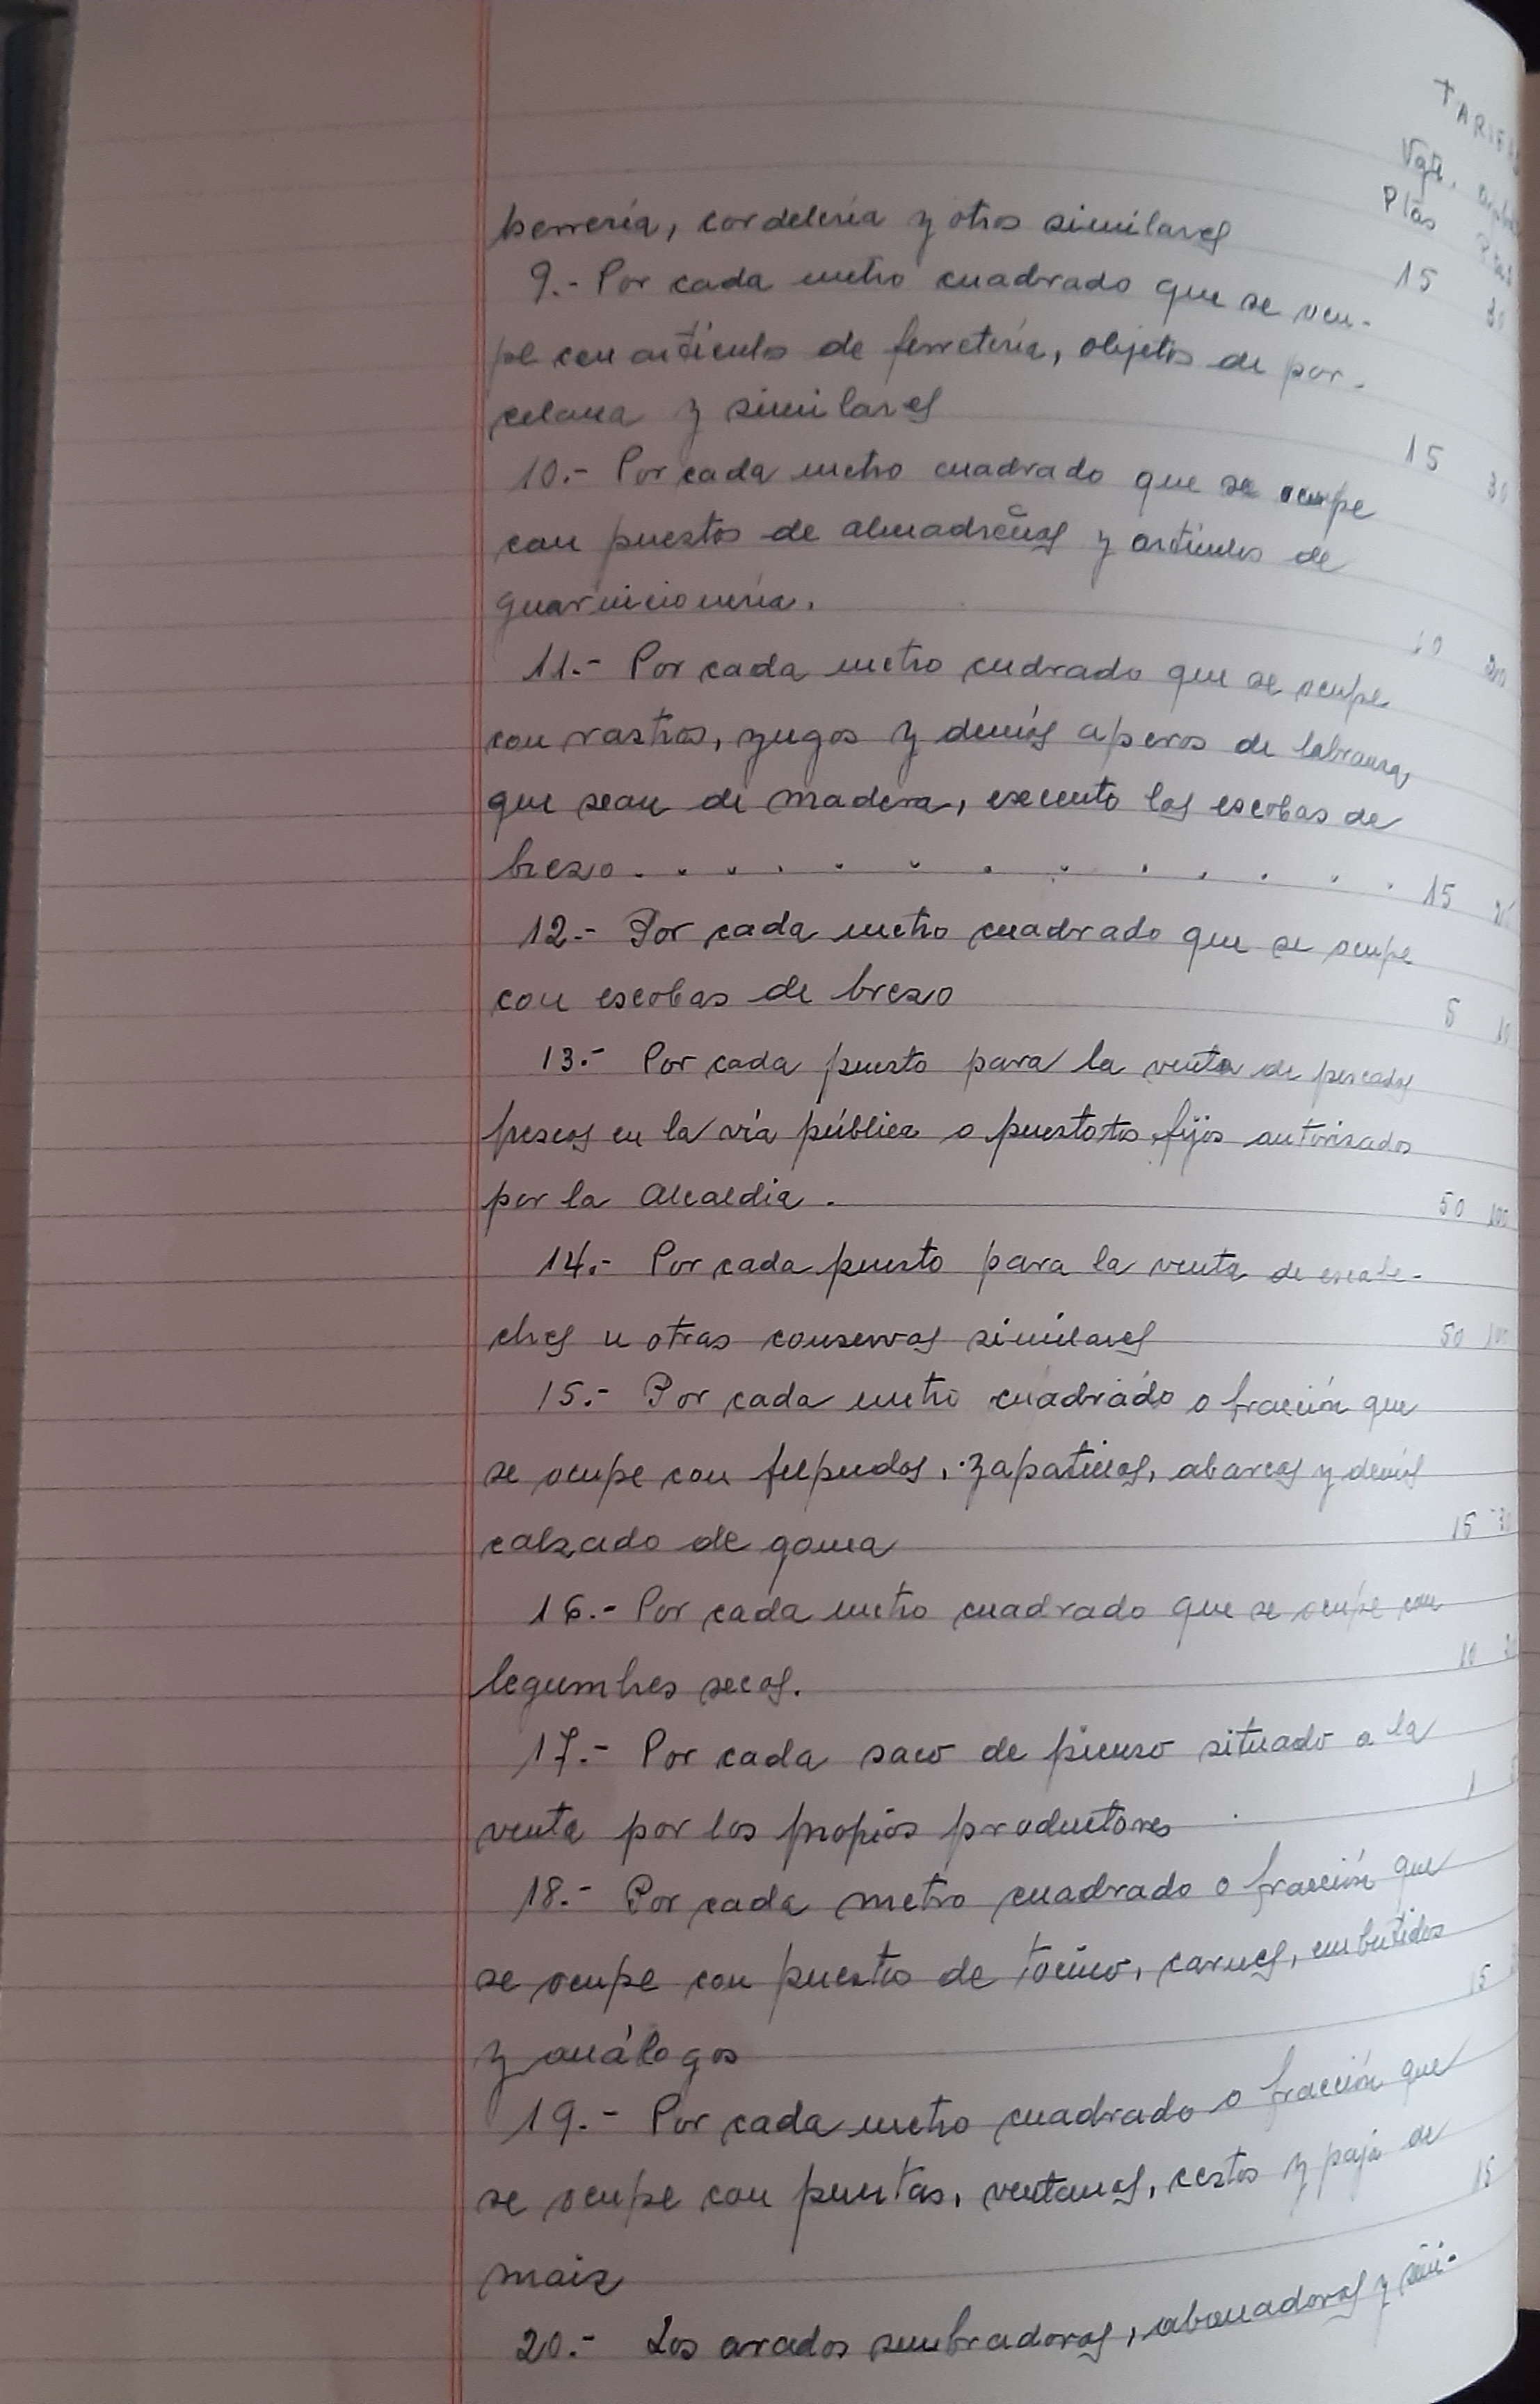 TARIFAS
Vgte.
Ptas Ptas
berrería, cordelería y otros similares 15 30
9.- Por cada metro cuadrado que se ocu-
pe con artículos de ferretería, objetos de por-
celana y similares 15 30
10.- Por cada metro cuadrado que se ocupe
con puestos de almadreñas y artículos de
guarnicionería. 10 20
11.- Por cada metro cudrado que se ocupe
con rastros, yugos y demás aperos de labranza,
que sean de madera, execento las escobas de
brezo . . . . . . . . . . . . . 15
12.- Por cada metro cuadrado que se ocupe
con escobas de brezo 5 10
13.- Por cada puesto para la venta de pescados
frescos en la vía pública o puestotos fijos autorizados
por la Alcaldia. 50 100
14.- Por cada puesto para la venta de escabe-
ches u otras conservas similares 50 100
15.- Por cada metro cuadrado o fracción que
se ocupe con felpudos, zapatillas, abarcas y demás
calzado de goma 15 30
16.- Por cada metro cuadrado que se ocupe con
legumbres secas. 10
17.- Por cada saco de pienso situado a la
venta por los propios productores 1
18.- Por cada metro cuadrado o fracción que
se ocupe con puestos de tocino, carnes, embutidos
y análogos 15
19.- Por cada metro cuadrado o fracción que
se ocupe con puertas, ventanas, cestos y paja de
maiz 15
20.- Los arados sembradoras, abonadoras y simi-